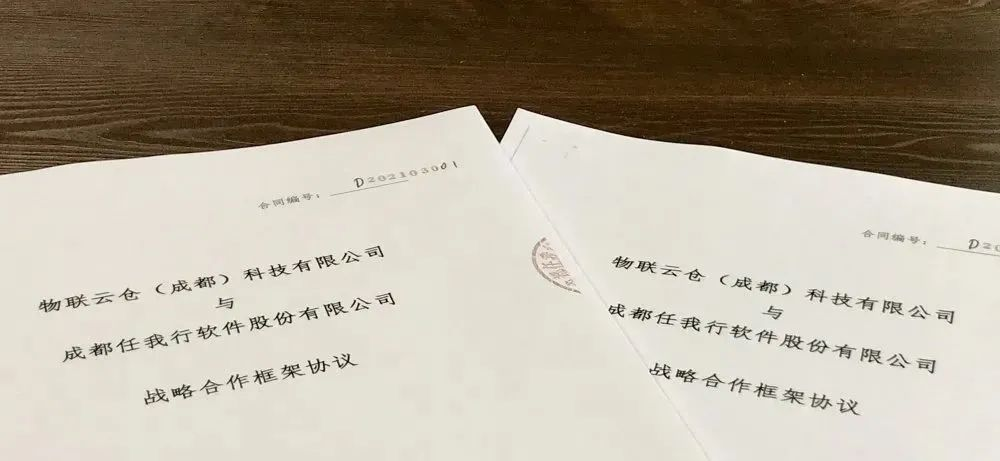 合同编号：D202103001
物联云仓（成都）科技有限公司
与
成都任我行软件股份有限公司
战略合作框架协议
合同编号：D20
物联云仓（成都）科技有限公司
与
成都任我行软件股份有限公司
战略合作框架协议